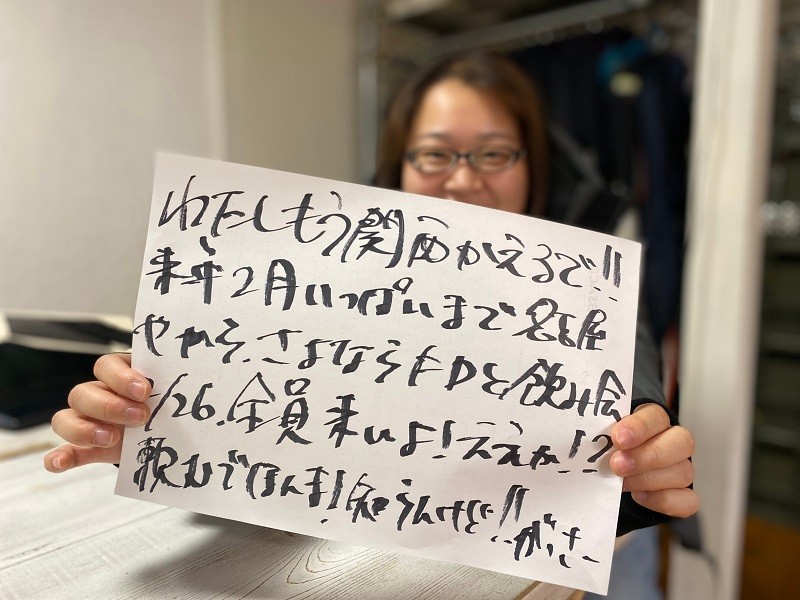 わたしもう関西かえるで!!
来年2月いっぱいまで名古屋
やから、さよなら 飲み会
/26.全員来いよ!ええか!?
頼むでほんま!知らんけど!!